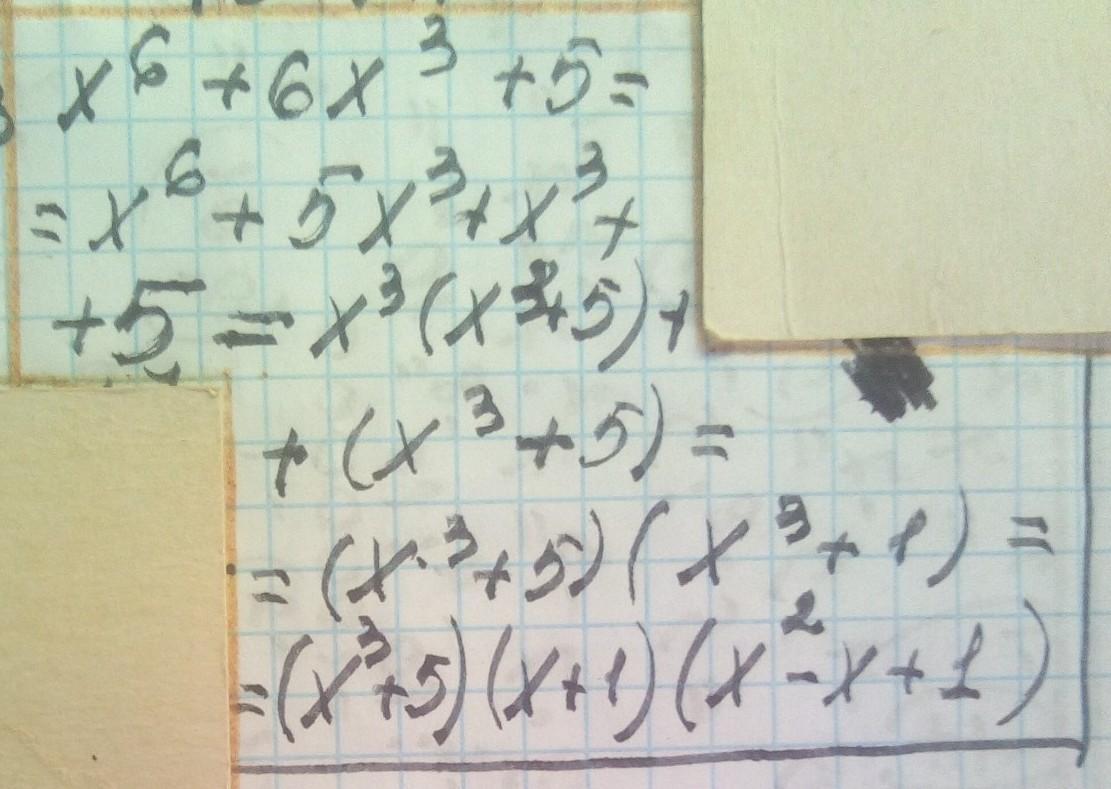 x⁶ + 6x³ + 5 =
= x⁶ + 5x³ + x³ +
+ 5 = x³(x³+5) +
+ (x³ + 5) =
= (x³+5)(x³ + 1) =
= (x³+5)(x+1)(x² - x + 1)